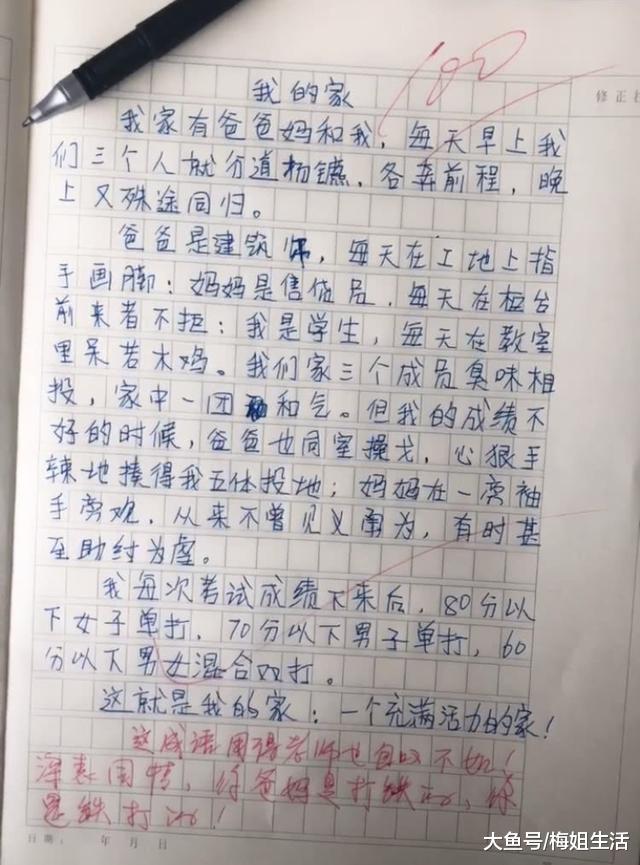 100
我的家
修正栏
我家有爸爸妈和我，每天早上我
们三个人就分道扬镳，各奔前程，晚
上又殊途同归。
爸爸是建筑师，每天在工地上指
手画脚；妈妈是售货员，每天在柜台
前来者不拒；我是学生，每天在教室
里呆若木鸡。我们家三个成员臭味相
投，家中一团和气。但我的成绩不
好的时候，爸爸也同室操戈，心狠手
辣地揍得我五体投地；妈妈在一旁袖
手旁观，从来不曾见义勇为，有时甚
至助纣为虐。
我每次考试成绩下来后，80分以
下女子单打，70分以下男子单打，60
分以下男女混合双打。
这就是我的家：一个充满活力的家！
这成语用得老师也自叹不如！
深表同情，你爸妈是打铁的，你
是铁打的！
日期： 年 月 日
大鱼号/梅姐生活